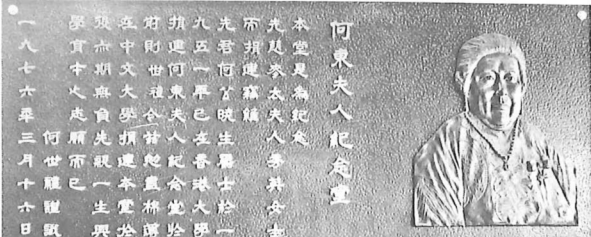 何東夫人紀念堂
本堂是為紀念
先慈麥太夫人秀英女士
而捐建竊維
先君何公曉生爵士於一
九五一年已在香港大學
捐建何東夫人紀念堂於
前則世禮今茲勉盡棉薄
在中文大學捐建本堂於
後亦期無負先親一生興
學育才之志願而已
何世禮謹識
一九七六年三月十六日